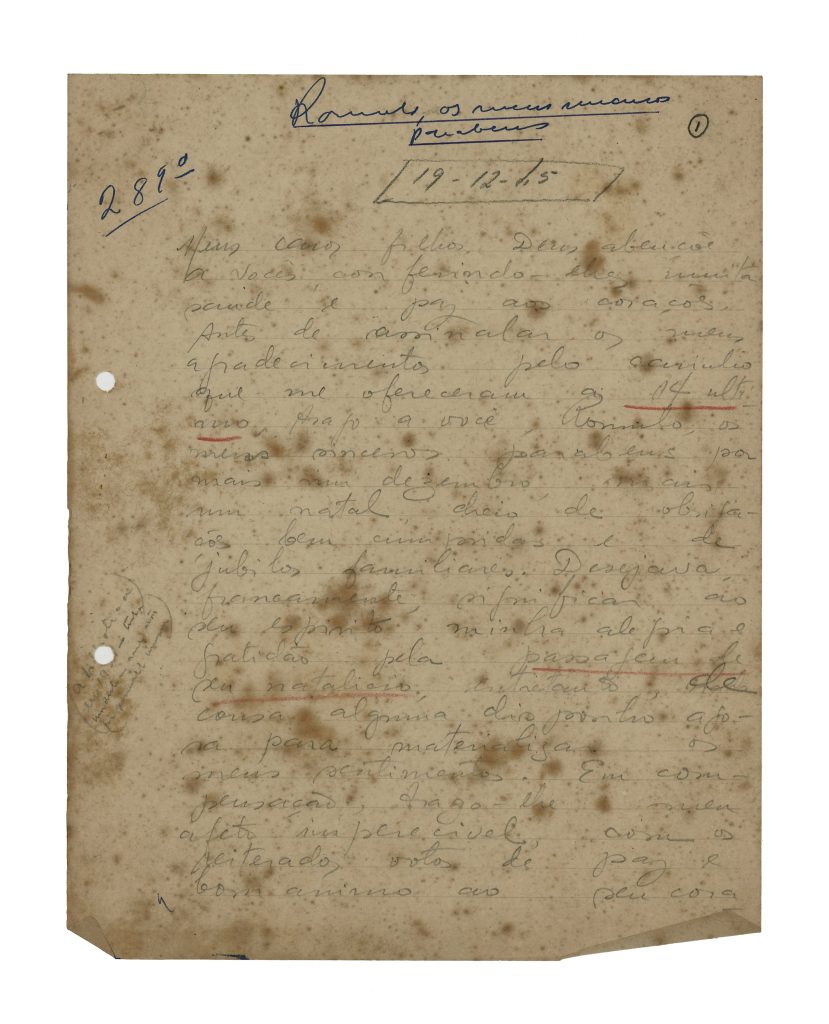 Romulo, os meus
parabens
1
289º
19-12-45
Meus caros filhos. Deus abençôe
a vocês conferindo-lhes muita
saude e paz aos corações.
Antes de assinalar os meus
agradecimentos pelo carinho
que me ofereceram a 14 ulti-
mo, trago a você, Romulo, os
meus sinceros parabens por
mais um dezembro, mais
um natal cheio de obriga-
ções bem cumpridas e de
jubilos familiares. Desejava,
francamente, significar ao
seu espirito minha alegria e
gratidão pela passagem de
seu natalicio, entretanto, de
cousa alguma disponho ago-
ra para materializar os
meus sentimentos. Em com-
pensação, trago-lhe meu
afeto imperecivel, com os
reiterados votos de paz e
bom animo ao seu cora